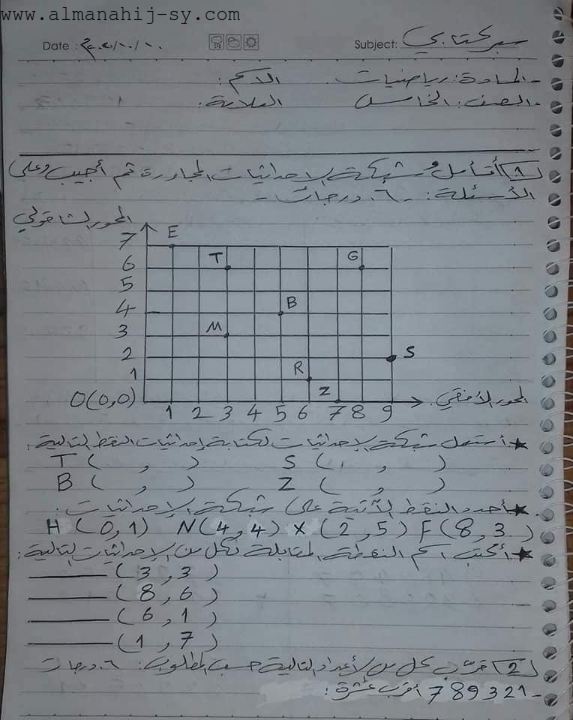 www.almanahij-sy.com
Date : ٢٠٢١/١٠/١٠ Subject: سبر كتابي
- المادة: رياضيات. الاسم:
- الصف: الخامس العلامة:
1 أتأمل شبكة الإحداثيات المجاورة ثم أجيب وعلى
الأسئلة: - ٦ درجات -
المحور الشاقولي
7 E
6 T G
5
4 B
3 M
2 S
1 R
O(0,0) Z المحور الأفقي
1 2 3 4 5 6 7 8 9
★ أستعمل شبكة الإحداثيات لكتابة إحداثيات النقط التالية:
T ( , ) S ( , )
B ( , ) Z ( , )
★ أحدد النقط الآتية على شبكة الإحداثيات:
H (0,1) N(4,4) X (2,5) F(8,3)
★ أكتب اسم النقطة المقابلة لكل من الإحداثيات التالية:
(3,3)
(8,6)
(6,1)
(1,7)
2 قرّب كل من الأعداد التالية حسب المطلوب: ٦ درجات
- 789321 أقرب عشرة: